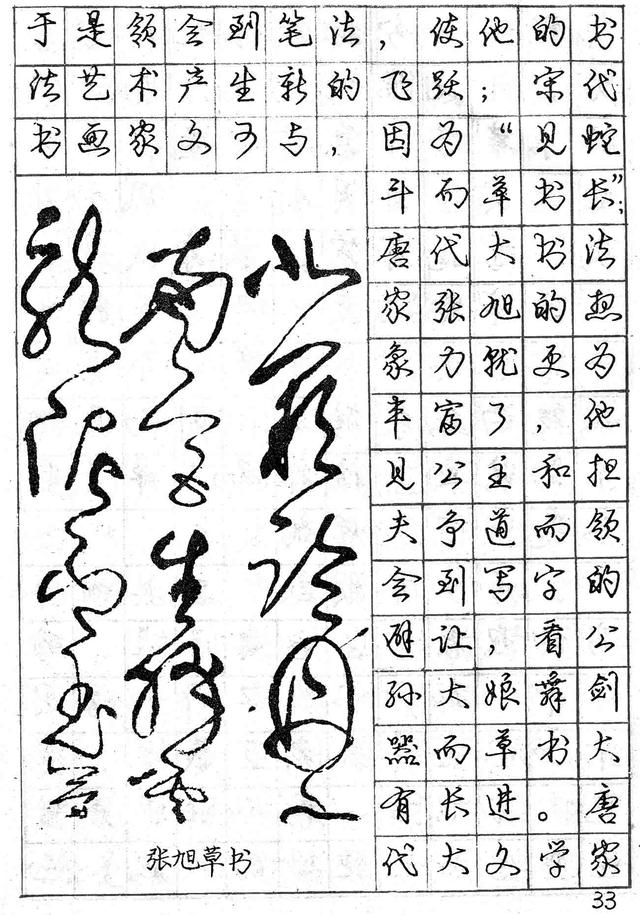 于是领会到笔法，使他的书
法艺术产生新的飞跃；宋代
书画家文可与，因为“见蛇
斗而草书长”；
唐代大书法
家张旭的想
象力就更为
丰富了，他
见公主和担
夫争道而领
会到写字的
避让，看公
孙大娘舞剑
器而草书大
有长进。唐
代大文学家
北阙临丹水
南宫生绛云
龙泥印玉简
张旭草书
33